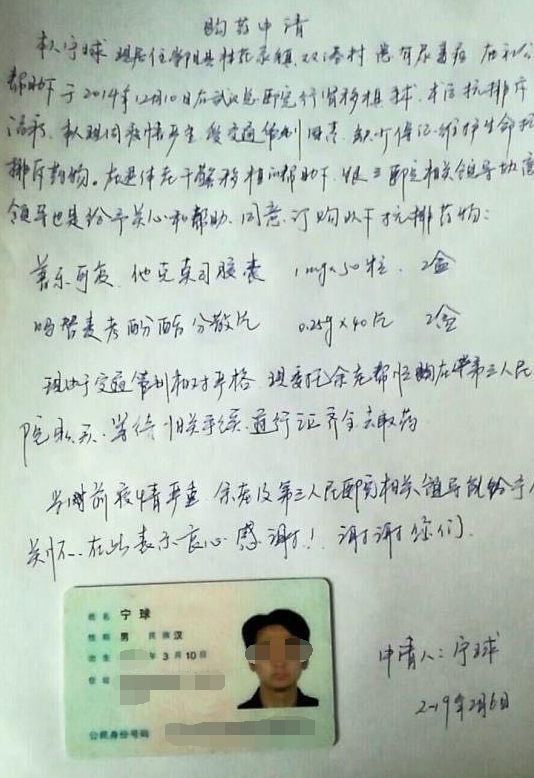 购药申请
本人宁球 现居住 县桂花泉镇 双港村 患有尿毒症 在
帮助下于2014年12月10日在武汉总医院行肾移植术 术后抗排斥
治疗 本人现因疫情严重 受交通管制 维护生命
排斥药物。在 帮助下 医院相关领导
领导也是给予关心和帮助 同意订购以下抗排药物：
普乐可复 他克莫司胶囊 1mg×50粒 2盒
吗替麦考酚酯分散片 0.25g×40片 2盒
现由于交通管制相对严格 现委托余尧帮忙购在 第三人民
院购买 等待相关手续 通行证齐全去取药
当前疫情严重 余尧及第三人民医院相关领导能给予
关怀 在此表示衷心感谢！谢谢你们
姓名 宁球
性别 男 民族 汉
出生 年3月10日
住址
公民身份号码
申请人：宁球
2019年2月6日